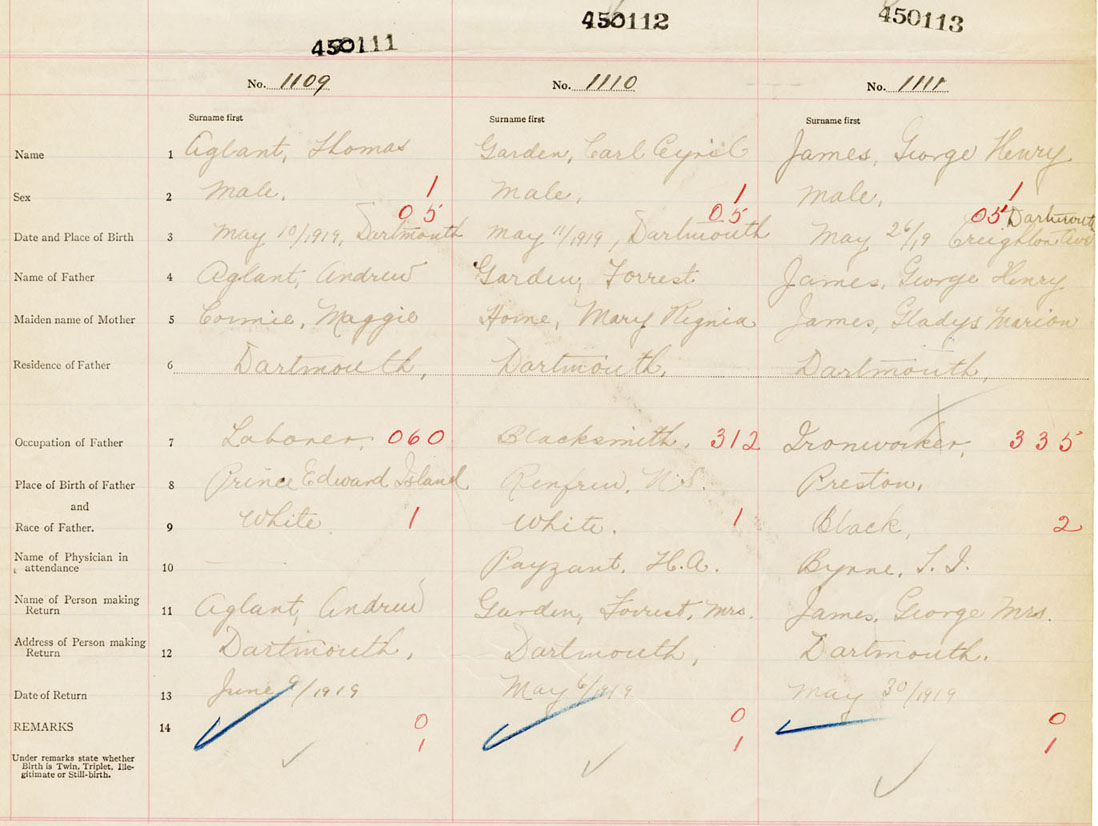 450111 450112 450113
No. 1109 No. 1110 No. 1111
Surname first Surname first Surname first
Name 1 Aglant, Thomas Garden, Carl Cyril James, George Henry
Sex 2 Male. 1 Male, 1 Male, 1
05 05 05 Dartmouth
Date and Place of Birth 3 May 10/1919, Dartmouth May 11/1919, Dartmouth May 26/19 Creighton Ave
Name of Father 4 Aglant, Andrew Garden, Forrest James, George Henry
Maiden name of Mother 5 Maggie Mary Regnia James, Gladys Marion
Residence of Father 6 Dartmouth, Dartmouth, Dartmouth,
Occupation of Father 7 Laborer, 060 Blacksmith. 312 Ironworker, 335
Place of Birth of Father 8 Prince Edward Island Renfrew, N.S. Preston,
and
Race of Father. 9 White 1 White. 1 Black, 2
Name of Physician in
attendance 10 Payzant, H.A. Byrne, T.I.
Name of Person making
Return 11 Aglant, Andrew Garden, Forrest, Mrs. James, George Mrs.
Address of Person making
Return 12 Dartmouth, Dartmouth, Dartmouth.
Date of Return 13 June 9/1919 May 6/1919 May 30/1919
REMARKS 14 0 0 0
1 1 1
Under remarks state whether
Birth is Twin, Triplet, Ille-
gitimate or Still-birth.